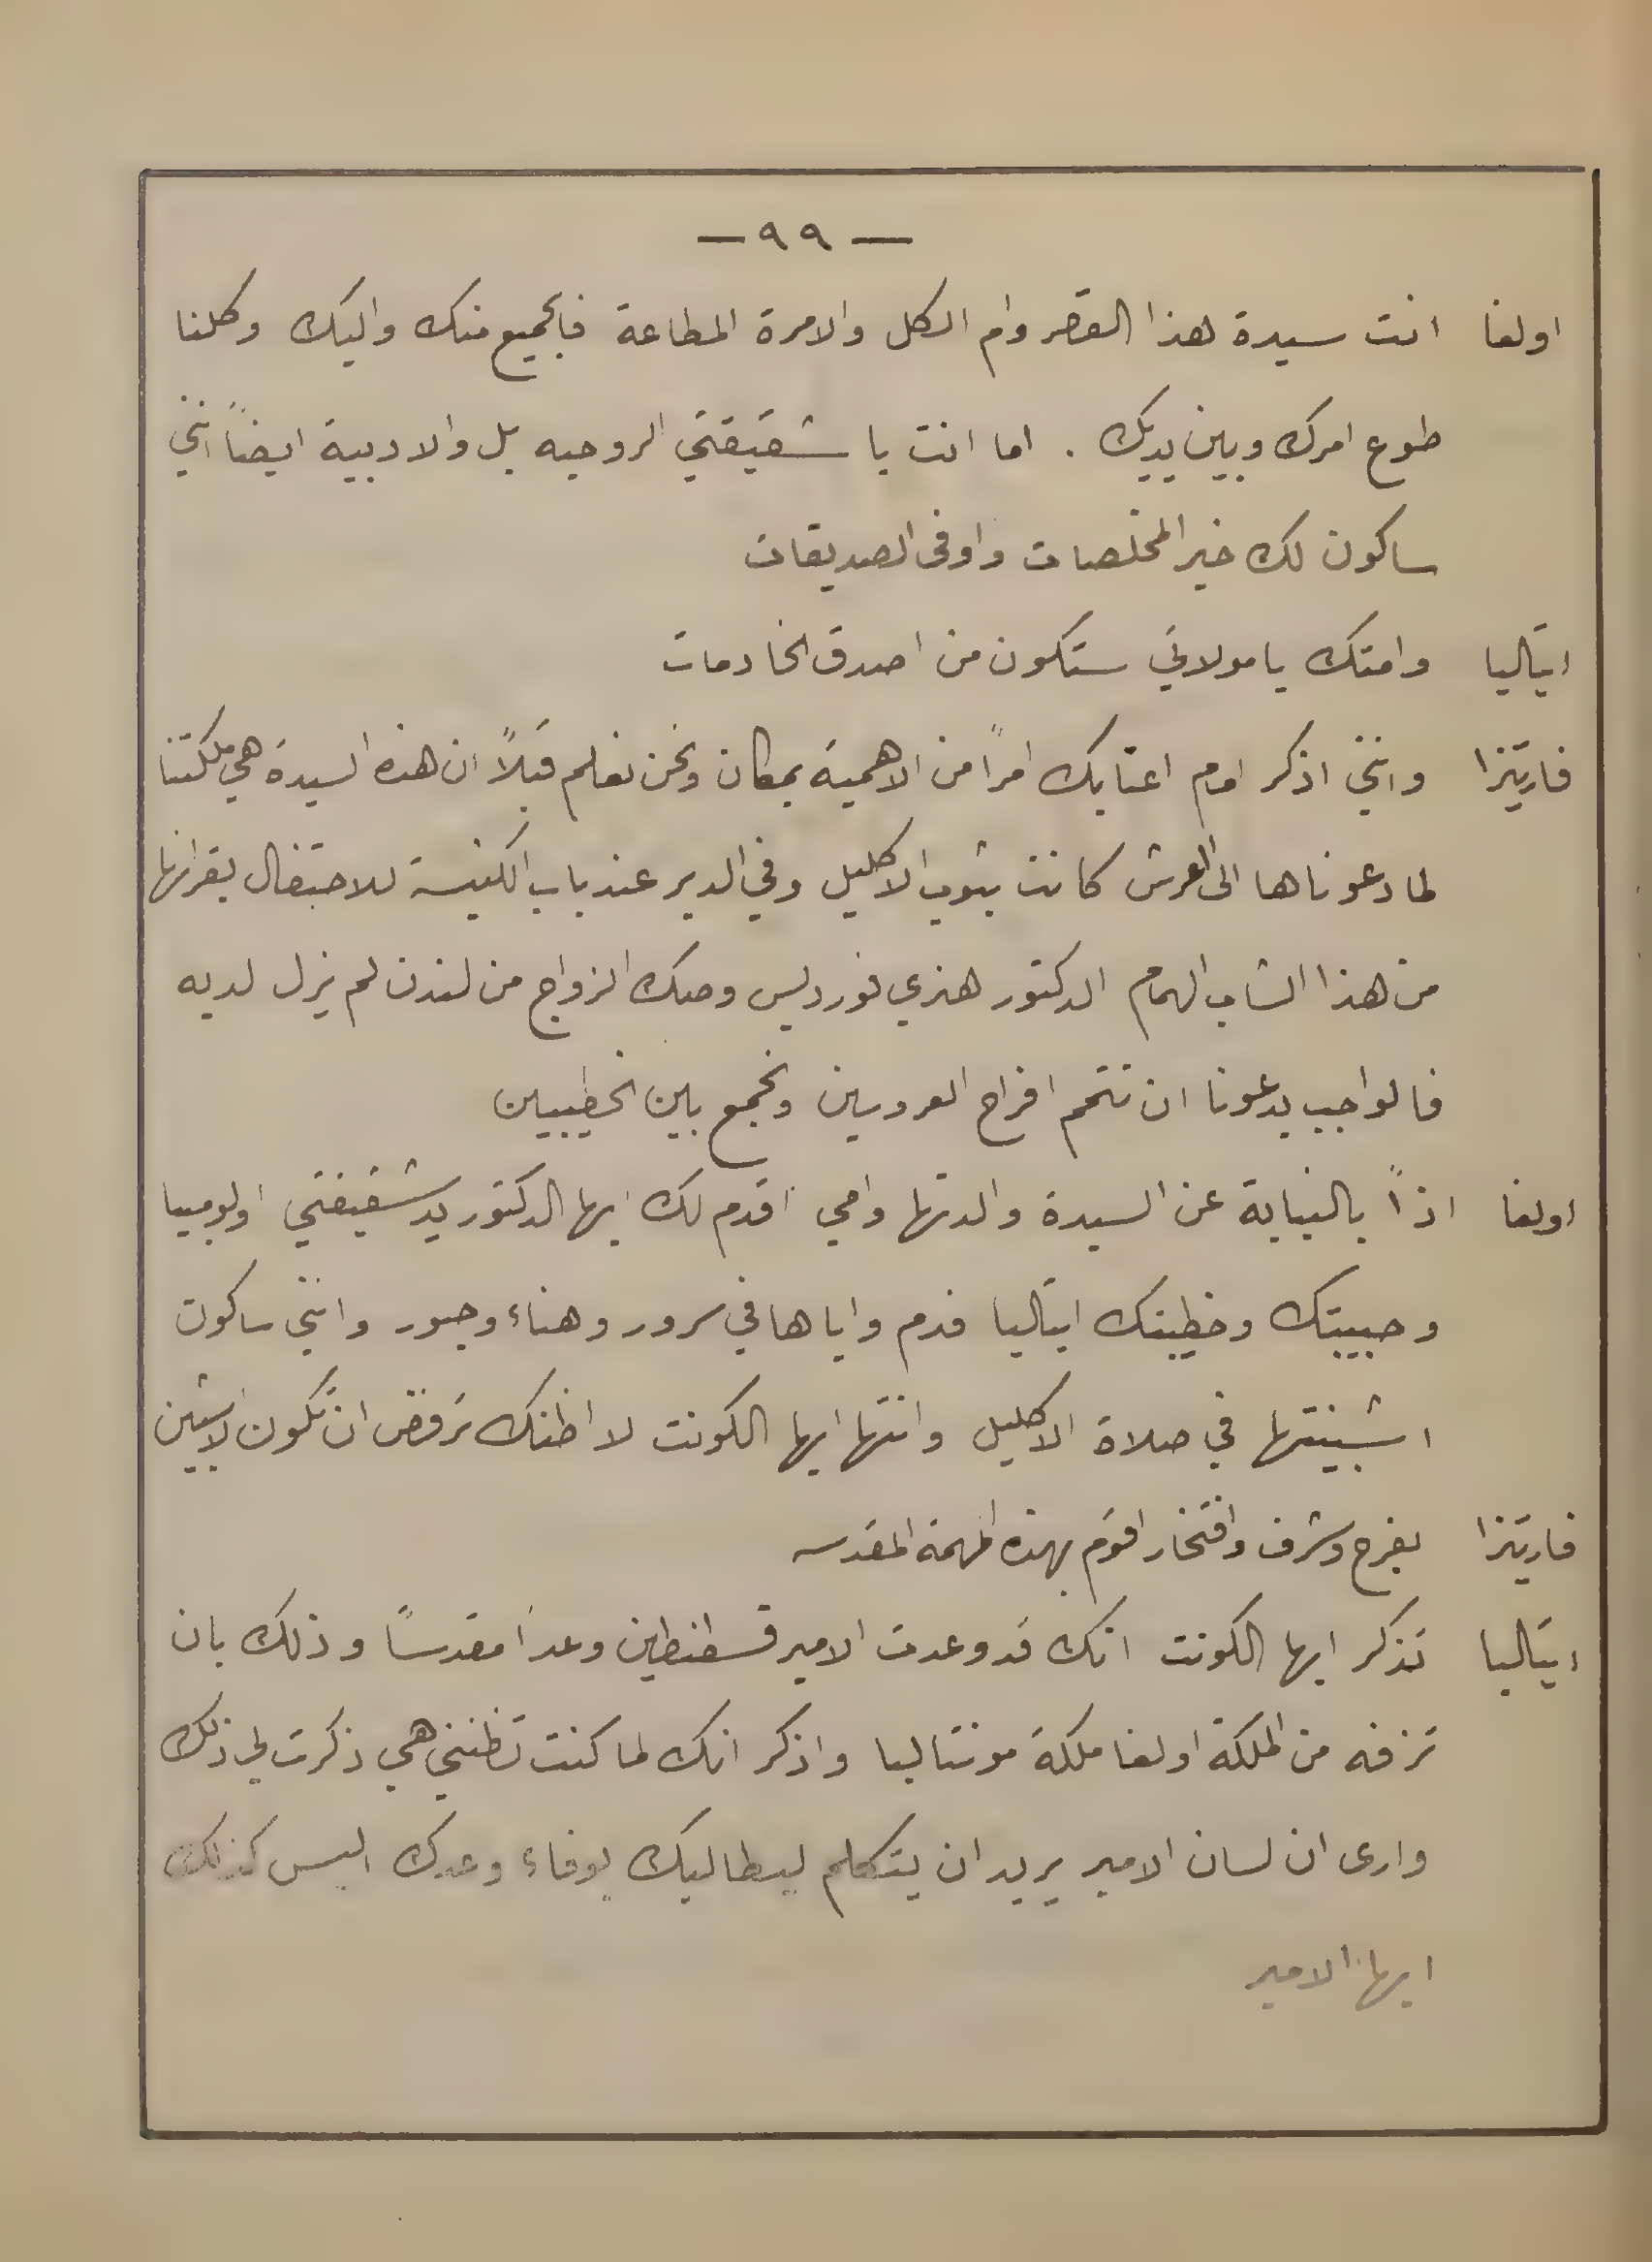 — ٩٩ —
اولغا انت سيدة هذا القصر وام الكل والامرة المطاعة فالجميع منك واليك وكلنا
طوع امرك وبين يديك . اما انت يا شقيقتي الروحيه بل والادبية ايضاً انني
ساكون لك خير المخلصات واوفى الصديقات
ايتاليا وامتك يا مولاتي ستكون من اصدق الخادمات
فاريتزا وانني اذكر امام اعتابك امراً من الاهمية بمكان ونحن نعلم قبلاً ان هذه السيدة هي ملكتنا
لما دعوناها الى العرش كانت بثوب الاكليل وفي الدير عند باب الكنيسة للاحتفال بقرانها
من هذا الشاب الهمام الدكتور هنري نورديس وصك الزواج من لندن لم يزل لديه
فالواجب يدعونا ان نتمم افراح العروسين ونجمع بين الخطيبين
اولغا اذاً بالنيابة عن السيدة والدتها وامي اقدم لك ايها الدكتور يد شقيقتي اولومبيا
وحبيبتك وخطيبتك ايتاليا فدم واياها في سرور وهناء وحبور وانني ساكون
اشبينتها في صلاة الاكليل وانتها ايها الكونت لا اظنك ترفض ان تكون الاشبين
فاريتزا بفرح وشرف وافتخار اقوم بهذه المهمة المقدسه
ايتاليا تذكر ايها الكونت انك قد وعدت الامير قسطنطين وعداً مقدساً وذلك بان
تزفه من الملكة اولغا ملكة مونتاليا واذكر انك لما كنت تظنني هي ذكرت لي ذلك
وارى ان لسان الامير يريد ان يتكلم ليطاليك بوفاء وعدك اليس كذلك
ايها الامير